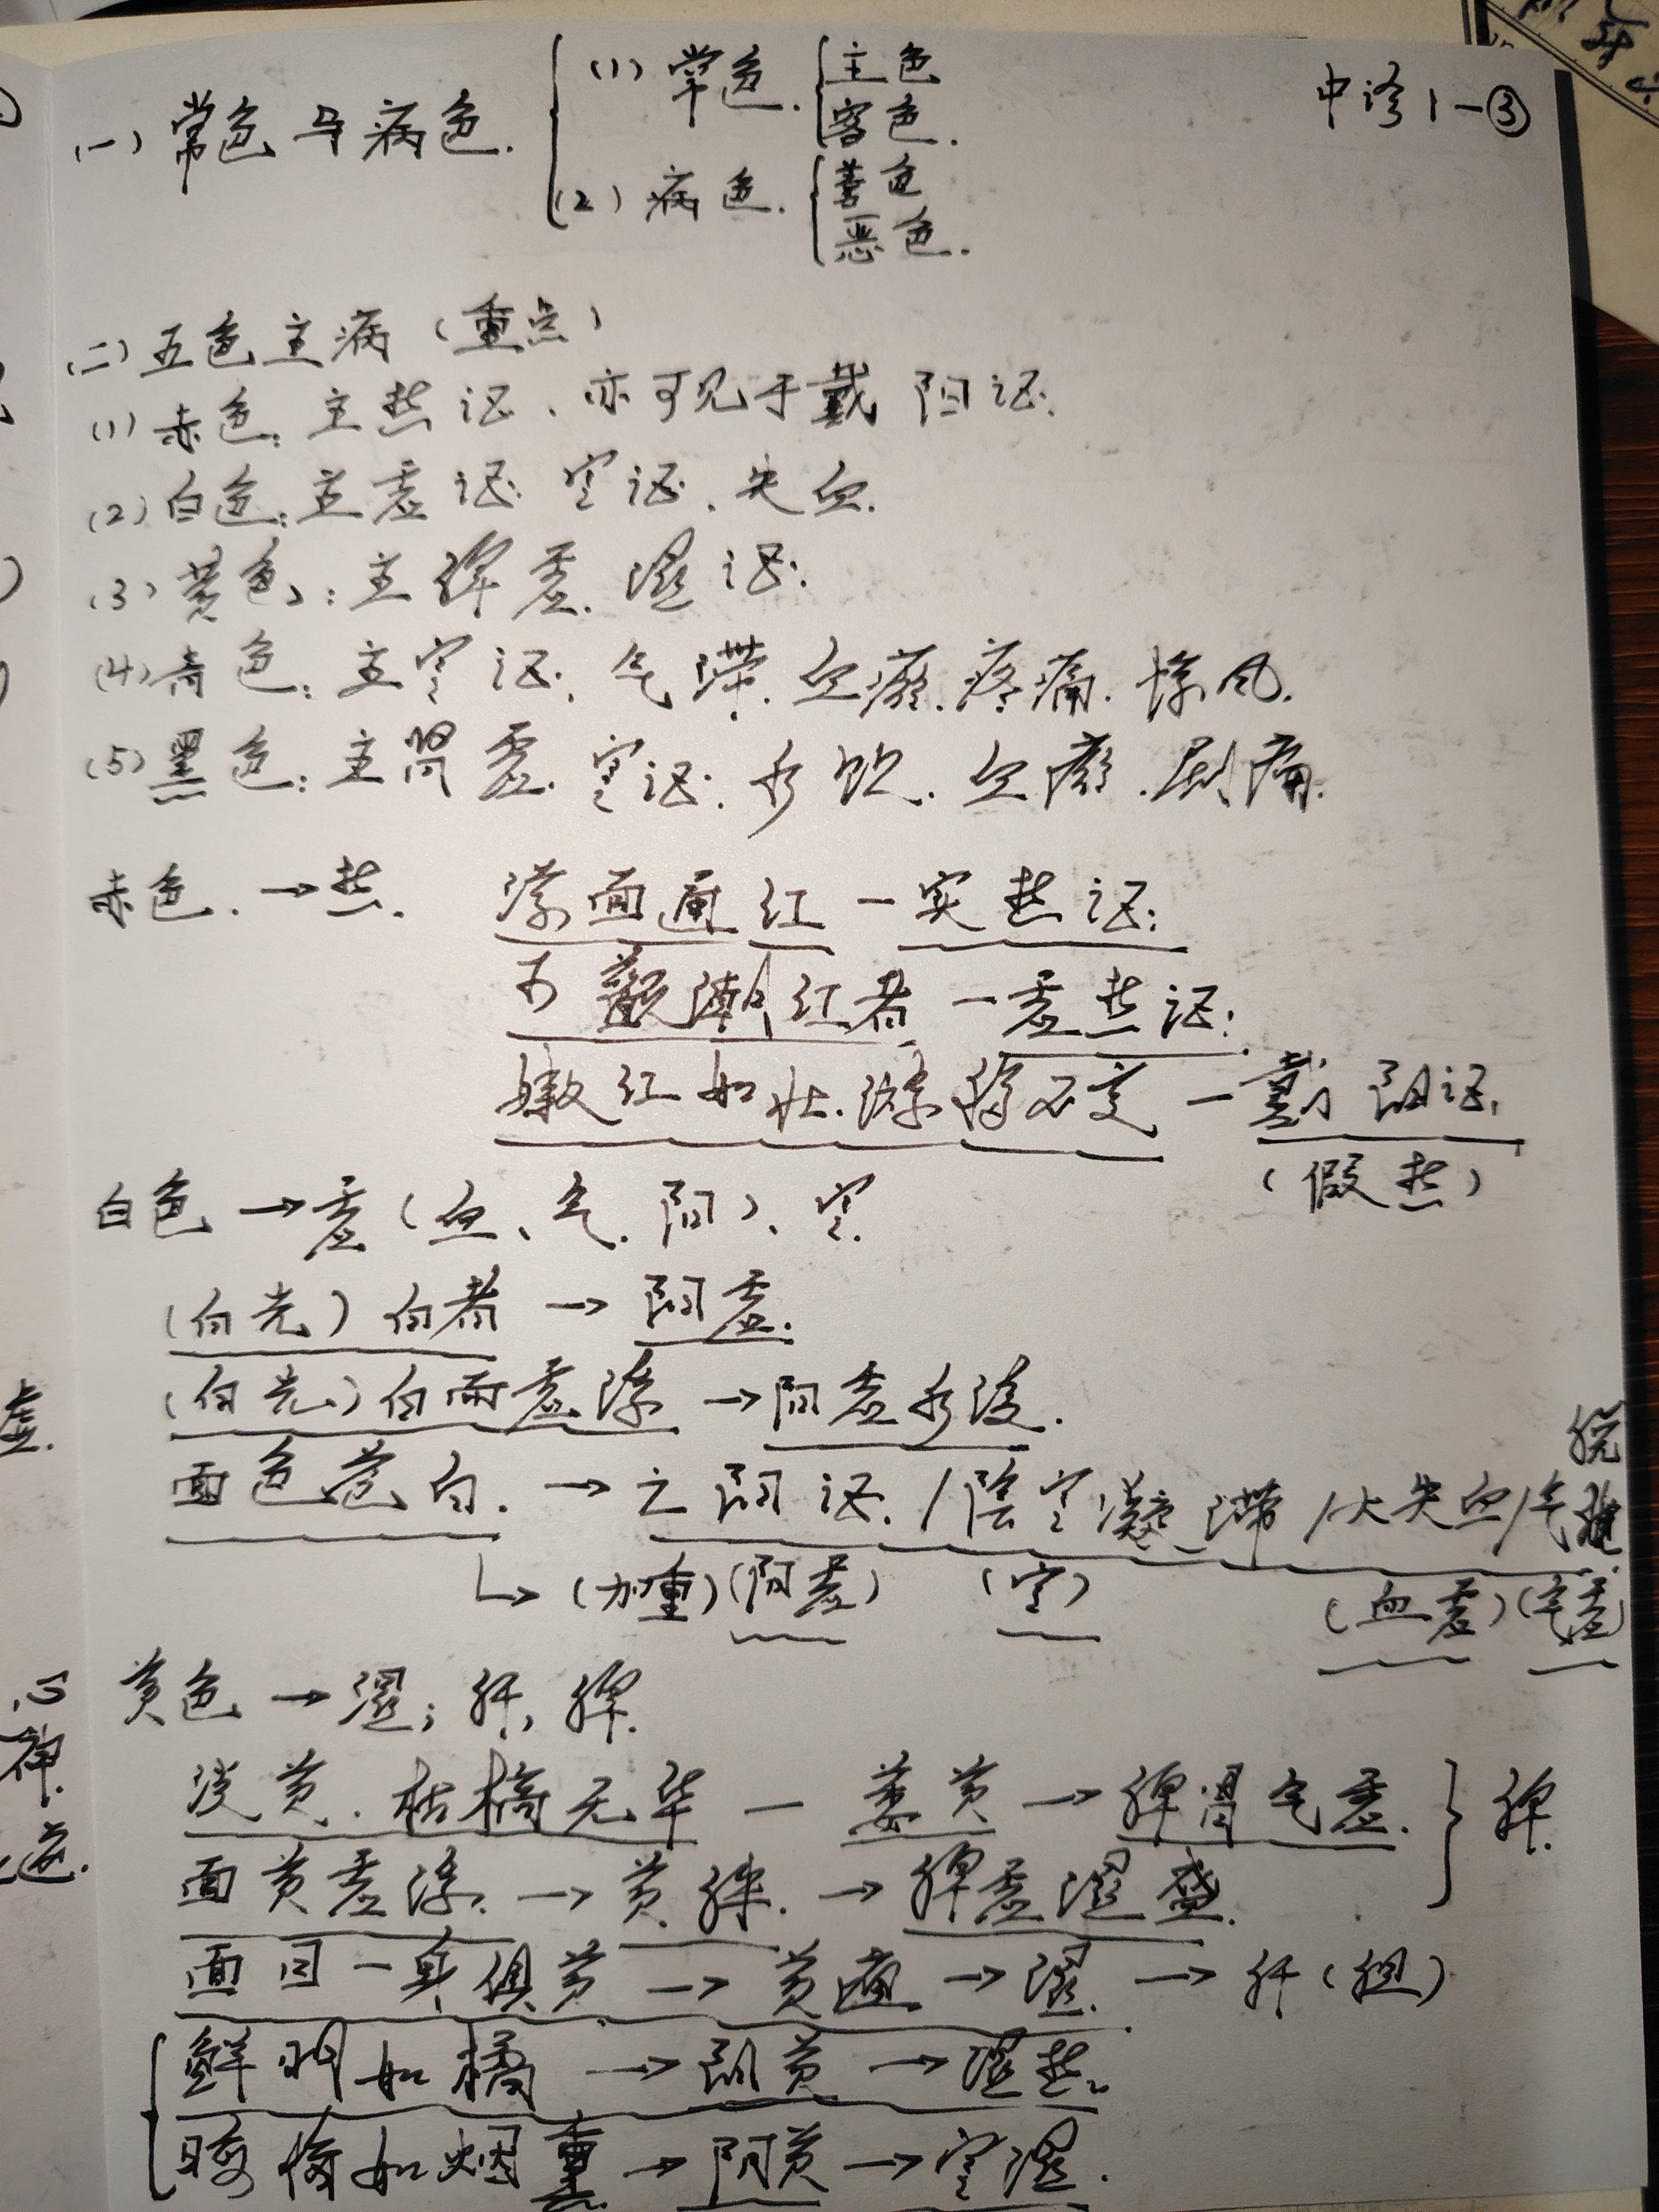 中诊1-③
(一)常色与病色. (1)常色. 主色 客色.
(2)病色. 善色 恶色.
(二)五色主病(重点)
(1)赤色:主热证、亦可见于戴阳证.
(2)白色:主虚证 寒证、失血.
(3)黄色:主脾虚. 湿证.
(4)青色:主寒证. 气滞. 血瘀. 疼痛. 惊风.
(5)黑色:主肾虚. 寒证. 水饮. 血瘀. 剧痛.
赤色. →热. 满面通红 — 实热证.
两颧潮红者 — 虚热证.
嫩红如妆. 游移不定 — 戴阳证.
(假热)
白色 → 虚(血、气. 阳)、寒.
(白光)白者 → 阳虚.
(白光)白而虚浮 → 阳虚水泛.
面色苍白. → 亡阳证. /陰寒凝滞 /大失血/气
脱
↳(加重)(阳虚) (寒) (血虚)(气虚)
黄色 → 湿; 肝, 脾.
淡黄. 枯槁无华 — 萎黄 → 脾胃气虚. } 脾.
面黄虚浮. → 黄胖. → 脾虚湿盛.
面目一身俱黄 → 黄疸 → 湿. → 肝(胆)
鲜明如橘 → 阳黄 → 湿热.
晦暗如烟熏 → 阴黄 → 寒湿.
虚.
心
神.